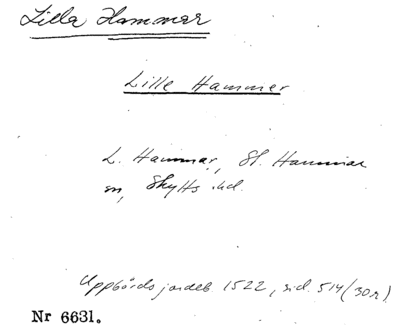 Lilla Hammar
Lille Hammer
L. Hammar, St. Hammar
sn, Skytts hd.
Uppbörds jordeb. 1522, sid. 514 (30r)
Nr 6631.